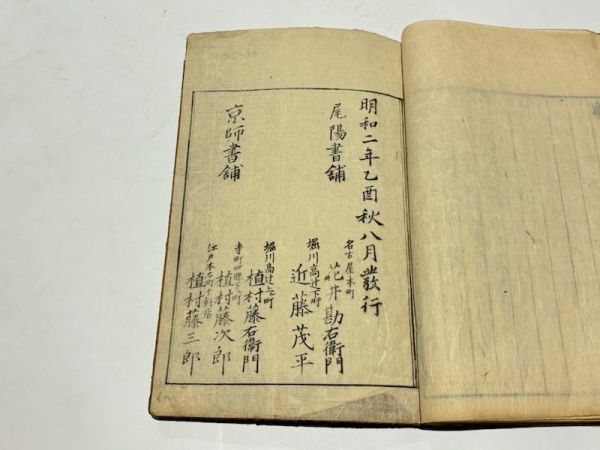 明和二年乙酉秋八月發行
尾陽書舗
名古屋本町
花井勘右衛門
京師書舗
堀川高辻下町
近藤茂平
堀川高辻上ル町
植村藤右衛門
寺町四條下町
植村藤次郎
江戸本石町十軒店
植村藤三郎